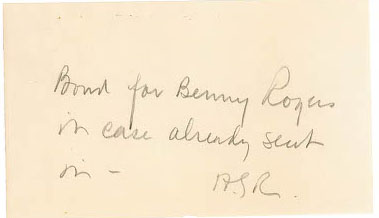 Bond for Benny Rogers
in case already sent
in -
H.G.R.